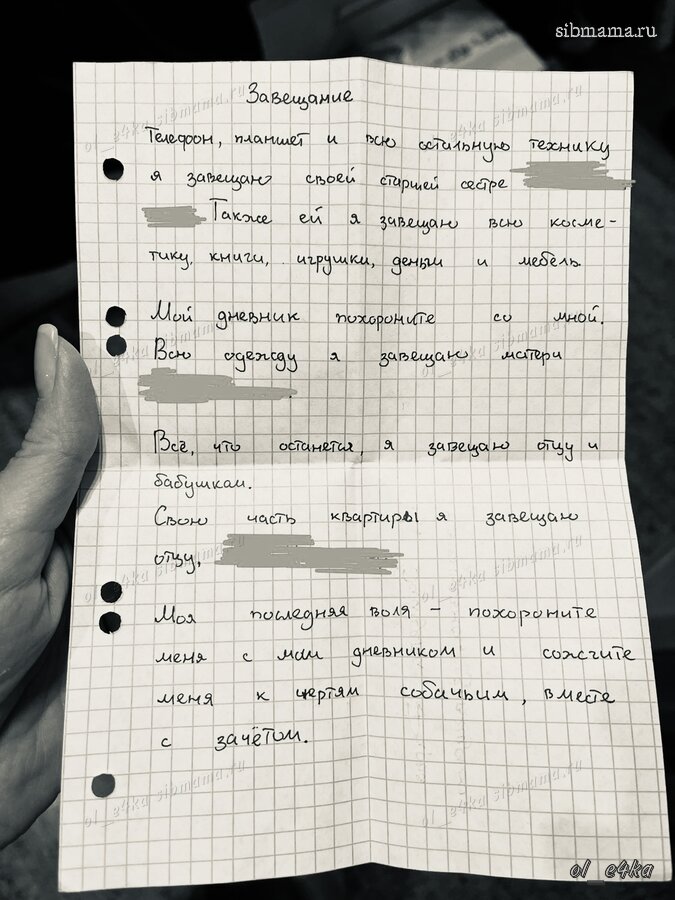 sibmama.ru
Завещание
Телефон, планшет и всю остальную технику
я завещаю своей старшей сестре
Также ей я завещаю всю косме-
тику, книги, игрушки, деньги и мебель
Мой дневник похороните со мной.
Всю одежду я завещаю матери
Всё, что останется, я завещаю отцу и
бабушкам.
Свою часть квартиры я завещаю
отцу,
Моя последняя воля – похороните
меня с мои дневником и сожгите
меня к чертям собачьим, вместе
с зачётом.
ol_e4ka sibmama.ru
ol_e4ka sibmama.ru
ol_e4ka